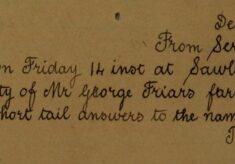 De
From Ser
n Friday 14 inst at Sawl
ty of Mr George Friars far
hort tail answers to the nam